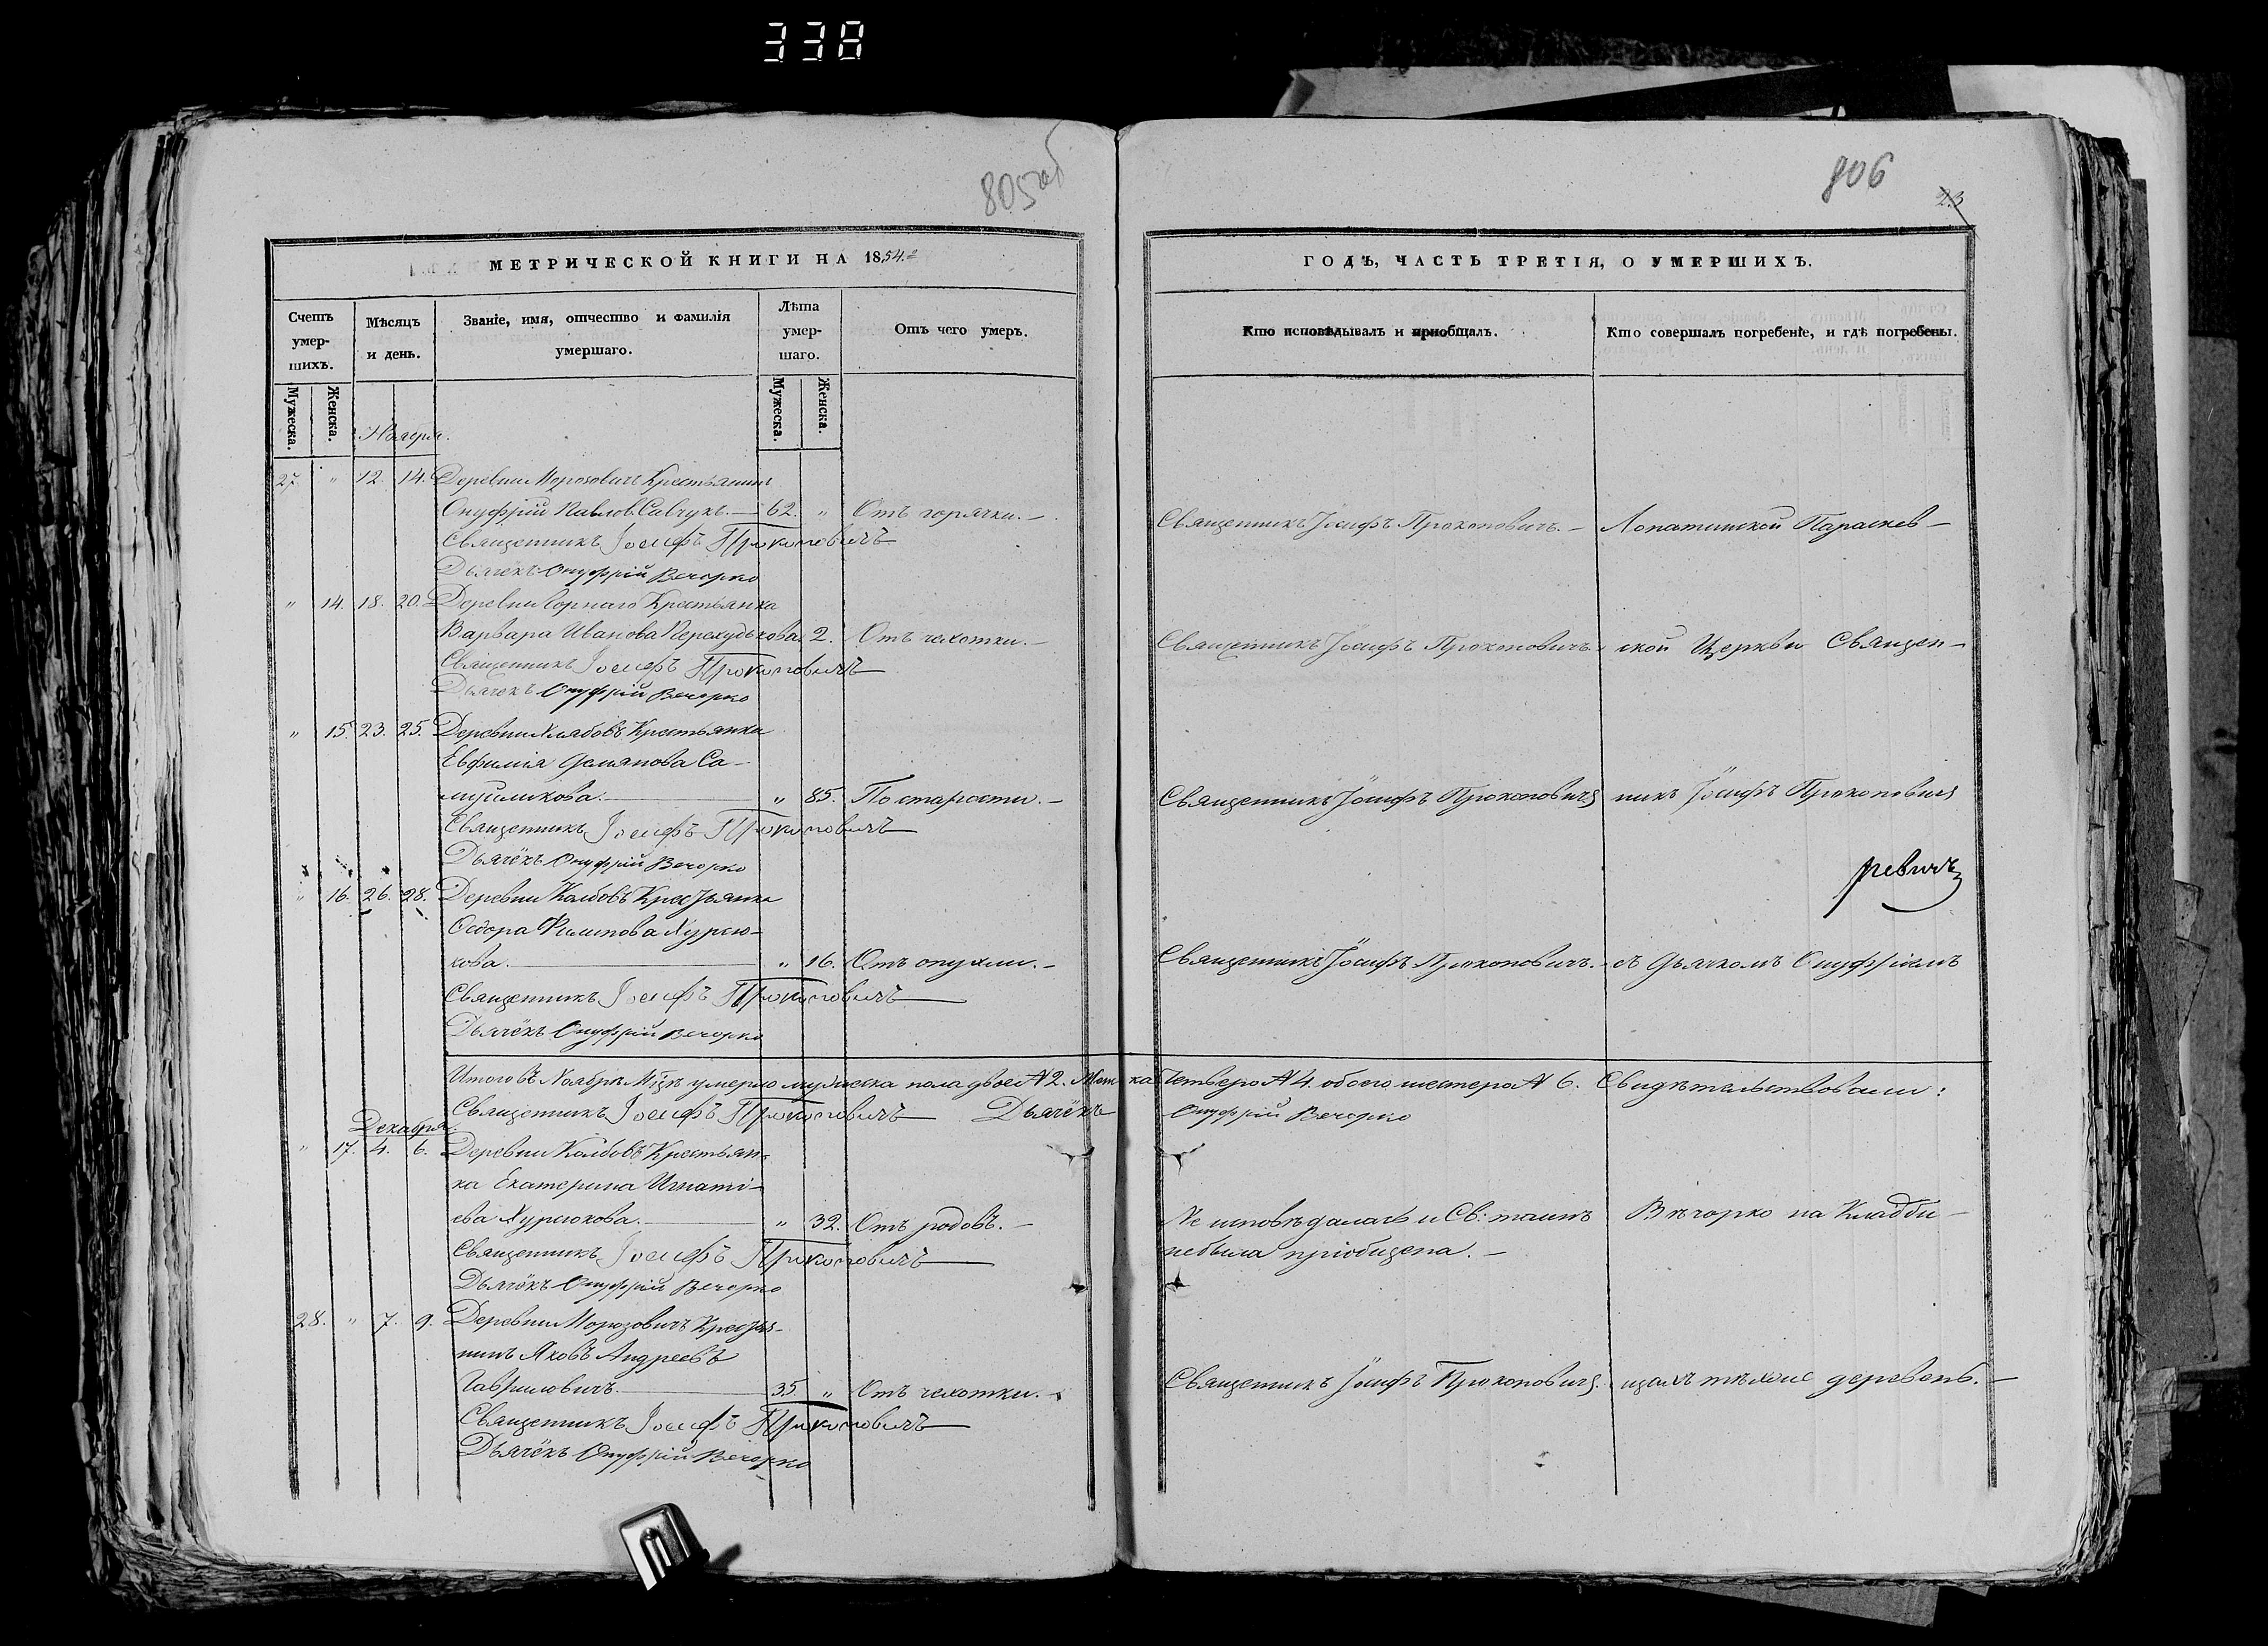 338
805 об
МЕТРИЧЕСКОЙ КНИГИ НА 1854.
Счетъ умер-шихъ.
Мѣсяцъ и день.
Званіе, имя, отчество и фамилія умершаго.
Лѣта умер-шаго.
Отъ чего умеръ.
Мужеска. Женска.
Мужеска. Женска.
Ноября.
27. " 12. 14. Деревни Морозовичъ Крестьянинъ
Онуфрій Павлов. Савчукъ.— 62. " Отъ горячки.—
Священникъ Іосифъ Прокоповичъ
Дьячёкъ Онуфрій Вечорко
" 14. 18. 20. Деревни Горнаго Крестьянка
Варвара Иванова 2. Отъ чахотки.—
Священникъ Іосифъ Прокоповичъ
Дьячекъ Онуфрій Вечорко
" 15. 23. 25. Деревни Крестьянка
Евфимія Демянова Са-
" 85. По старости.—
Священникъ Іосифъ Прокоповичъ
Дьячёкъ Онуфрій Вечорко
" 16. 26. 28. Деревни Колбовъ Крестьянка
Ѳедора Филипова Хурсю-
кова. " 16. Отъ опухли.—
Священникъ Іосифъ Прокоповичъ
Дьячёкъ Онуфрій Вечорко
Итого въ Ноябрѣ М-цѣ умерло мужеска пола двое № 2. Женска
Священникъ Іосифъ Прокоповичъ Дьячёкъ
Декабря.
" 17. 4. 6. Деревни Колбовъ Крестьян-
ка Екатерина Игнаті-
ева Хурсюкова. " 32. Отъ родовъ.—
Священникъ Іосифъ Прокоповичъ
Дьячёкъ Онуфрій Вечорко
28. " 7. 9. Деревни Морозовичъ Крестья-
нинъ Яковъ Андреевъ
Гавриловичъ. 35. " Отъ чахотки.—
Священникъ Іосифъ Прокоповичъ
Дьячёкъ Онуфрій Вечорко
806
23
ГОДЪ, ЧАСТЬ ТРЕТІЯ, О УМЕРШИХЪ.
Кто исповѣдывалъ и приобщалъ.
Кто совершалъ погребеніе, и гдѣ погребены.
Священникъ Іосифъ Прокоповичъ.— Лопатинской Параскев—
Священникъ Іосифъ Прокоповичъ. ской Церкви Священ—
Священникъ Іосифъ Прокоповичъ никъ Іосифъ Прокоповичъ
ревичъ
Священникъ Іосифъ Прокоповичъ.— съ Дьячкомъ Онуфріемъ
четверо № 4. обоего шестеро № 6. Свидѣтельствовали:
Онуфрій Вечорко
Не исповѣдалась и Св: таинъ Вѣчорко на Кладби—
небыла пріобщена.—
Священникъ Іосифъ Прокоповичъ. щахъ тѣхже деревень.—